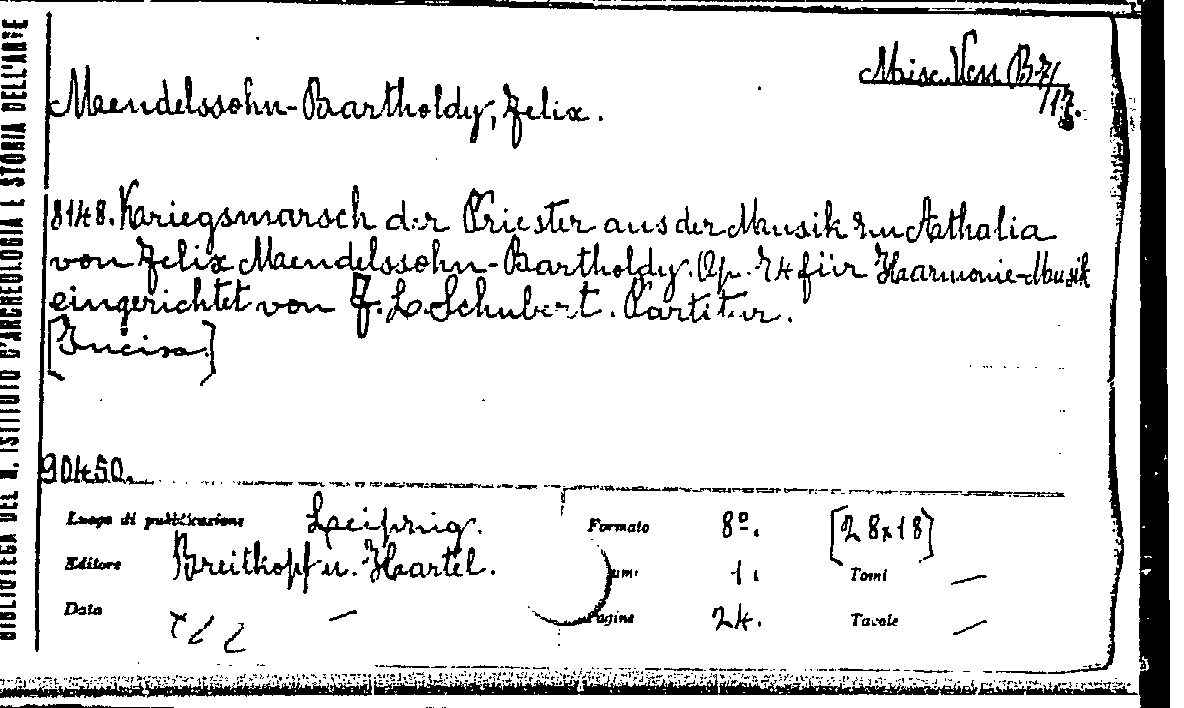 BIBLIOTECA DEL R. ISTITUTO D'ARCHEOLOGIA E STORIA DELL'ARTE
Misc. Vess. B-7/
/17.
Mendelssohn-Bartholdy, Felix.
8148. Kriegsmarsch der Priester aus der Musik zu Athalia
von Felix Mendelssohn-Bartholdy. Op. 74 für Harmonie-Musik
eingerichtet von F. L. Schubert. Partitur.
[Incisa]
90450.
Luogo di pubblicazione Leipzig. Formato 8º. [28x18]
Editore Breitkopf u. Härtel. 1. Tomi —
Data — Pagine 24. Tavole —